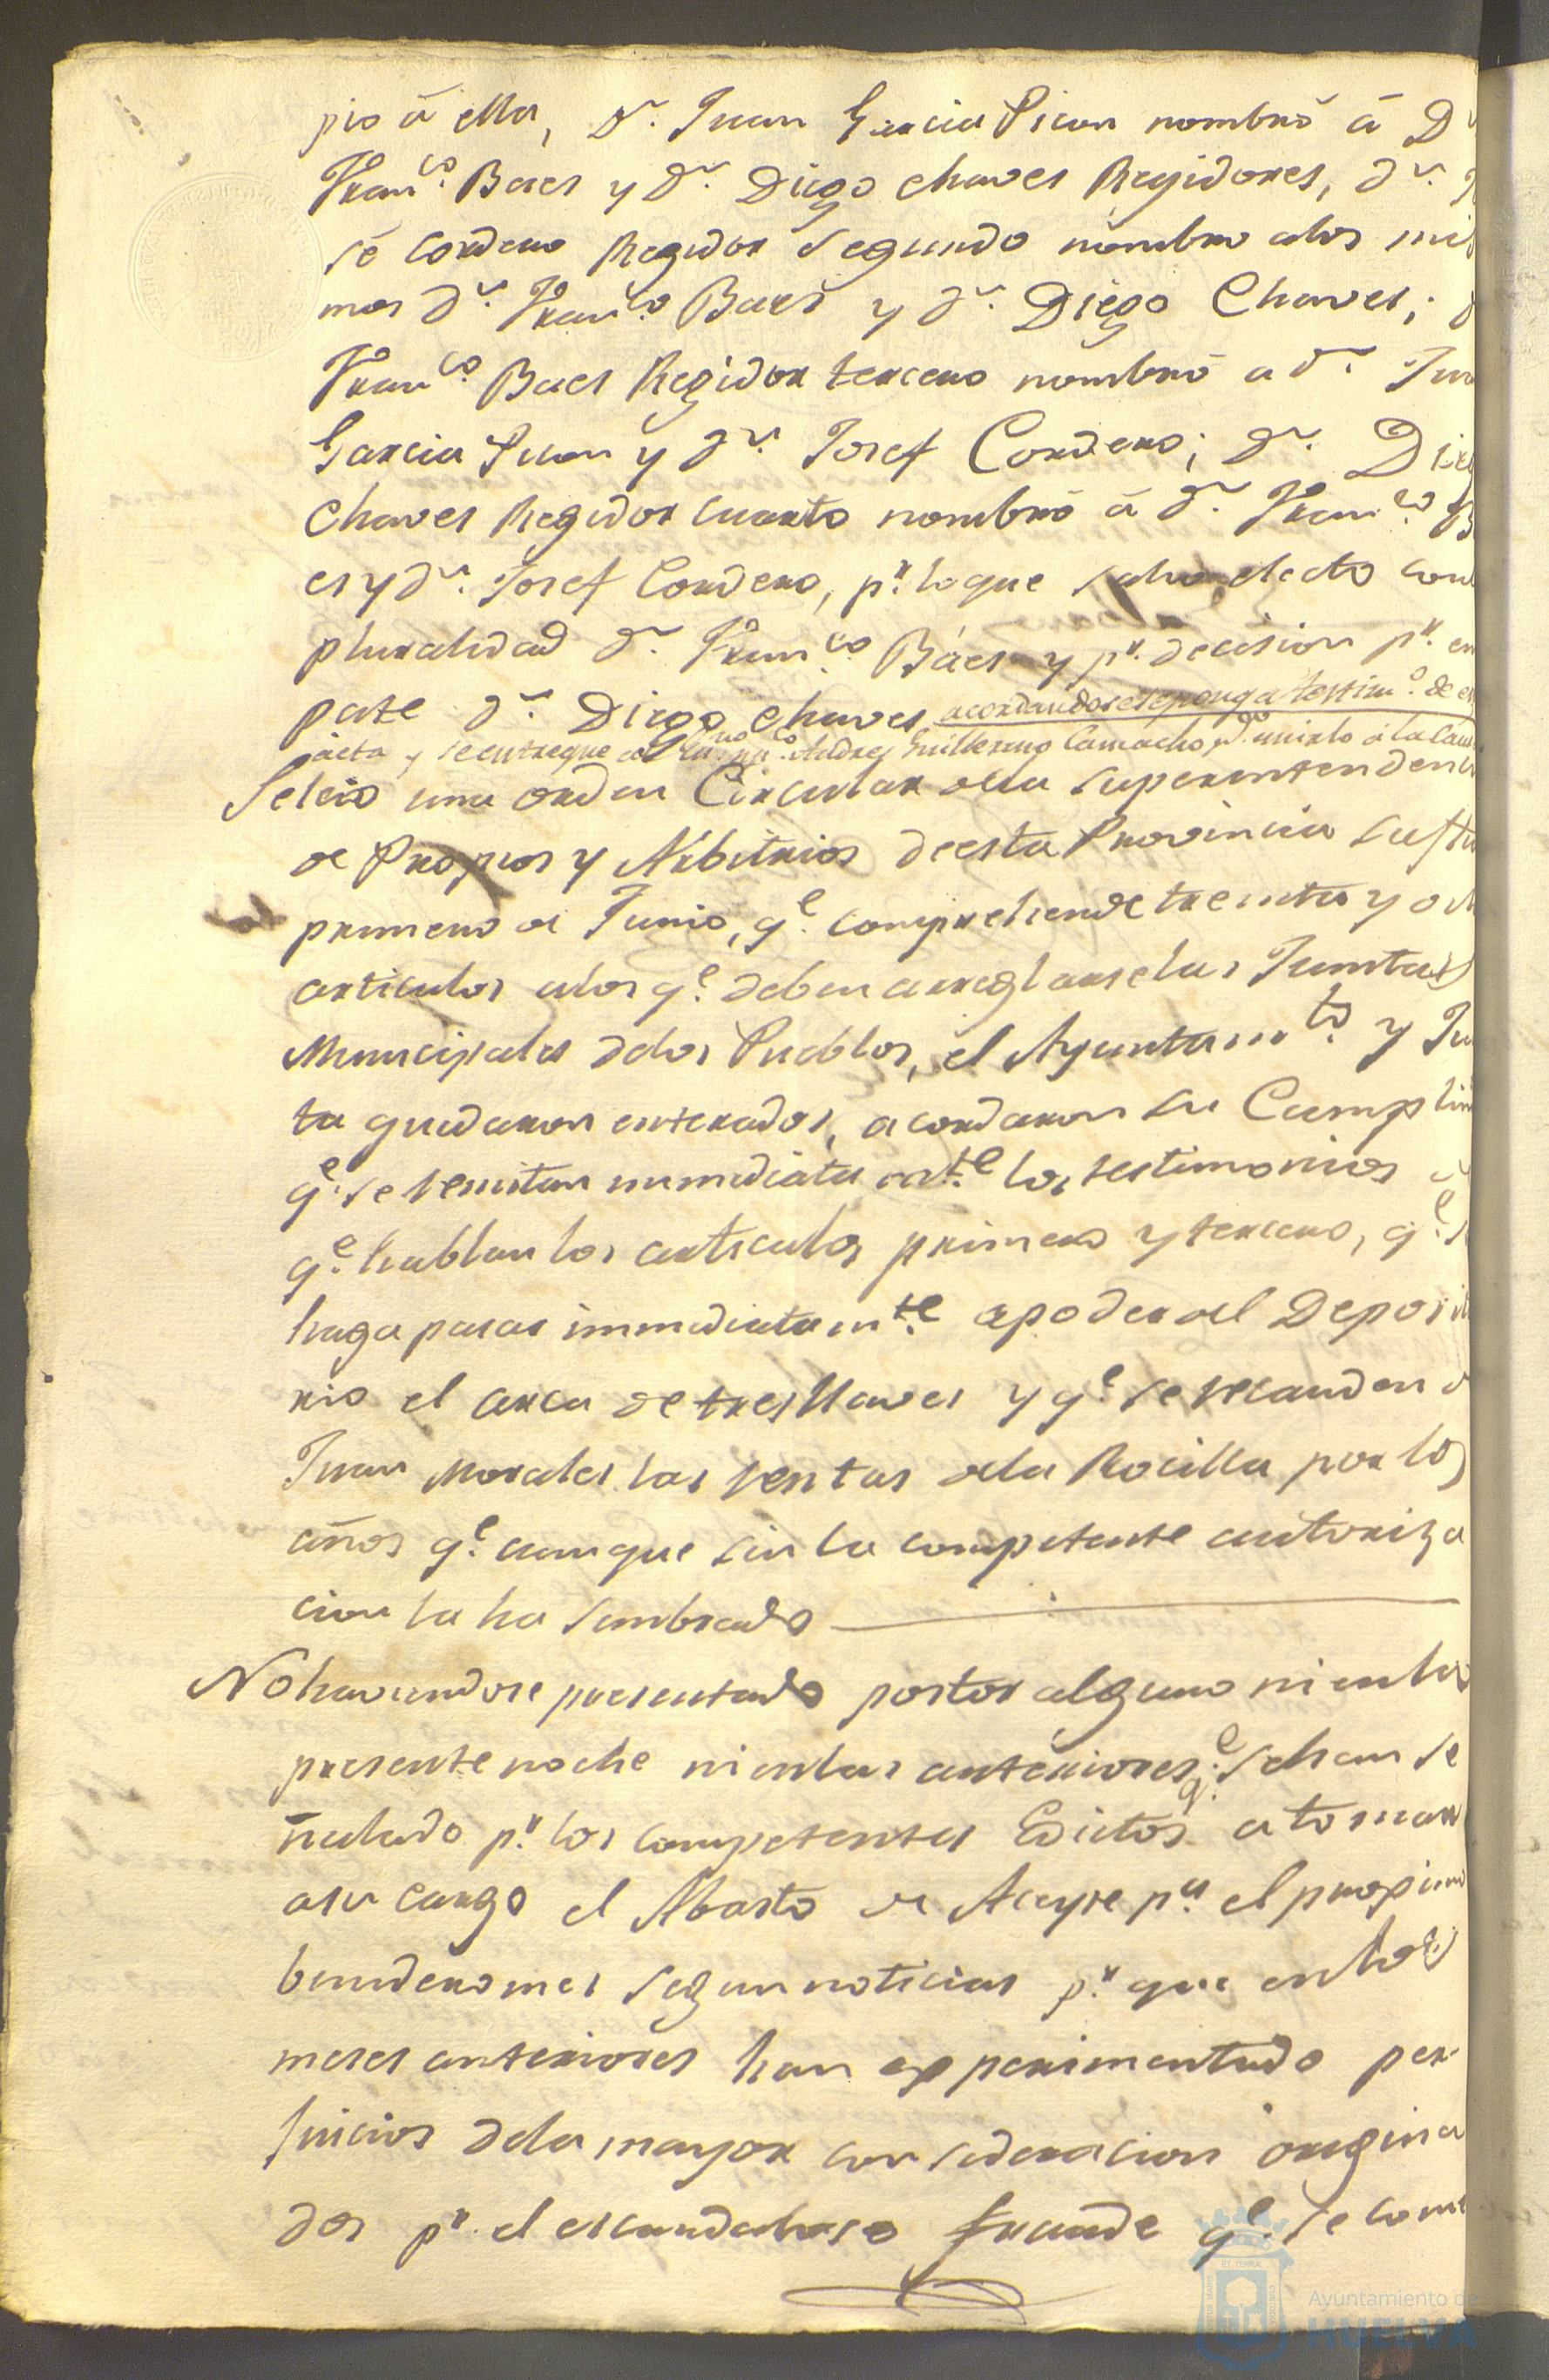 pio á ella, Dn. Juan Garcia Picon nombró á D
Franco. Baes y Dn. Diego Chaves Regidores, Dn.
sé Cordero Regidor Segundo nombro alos mis
mos Dn. Franco Baes y Dn. Diego Chaves;
Franco. Baes Regidor tercero nombró a Dn. Jua
Garcia Picon y Dn. Josef Cordero; Dn. Dieg
Chaves Regidor cuarto nombró á Dn. Franco. B
es y Dn. Josef Cordero, pr. loque salio electo con
pluralidad Dn. Franco. Báes y pr. decision pr. em
pate Dn. Diego Chaves acordandose se ponga testimo. de es
acta y se entregue al Andres Guillermo Camacho pa. unirlo á la Cau
Seleió una orden Circular dela Superintendenci
de Propios y Arbitrios deesta Provincia sufha
primero de Junio, qe. comprehende treinta y och
articulos alos qe. deben arreglarse las Juntas
Municipales delos Pueblos, el Ayuntamto. y Ju
ta quedaron enterados, acordaron su Cumplim
qe. se remitan inmediatamte. los testimonios
qe. hablan los articulos primero y tercero, qe. s
haga pasar inmediatamte. apoder del Deposit
rio el arca de tres llaves y qe. se recauden d
Juan Morales las rentas dela Rocilla por los
años qe. aunque sin la competente autoriza
cion la ha sembrado
No haviendose presentado postor alguno ni enla
presente noche ni enlas anteriores qe. sehan se
ñalado pr. los competentes Edictos a tomar
asu cargo el Abasto de Aceyte pa. el proximo
benidero mes segun noticias pr. que enlos
meses anteriores han experimentado per-
juicios dela mayor consideracion origina
dos pr. el escandaloso fraude qe. se come
Ayuntamiento de
HUELVA